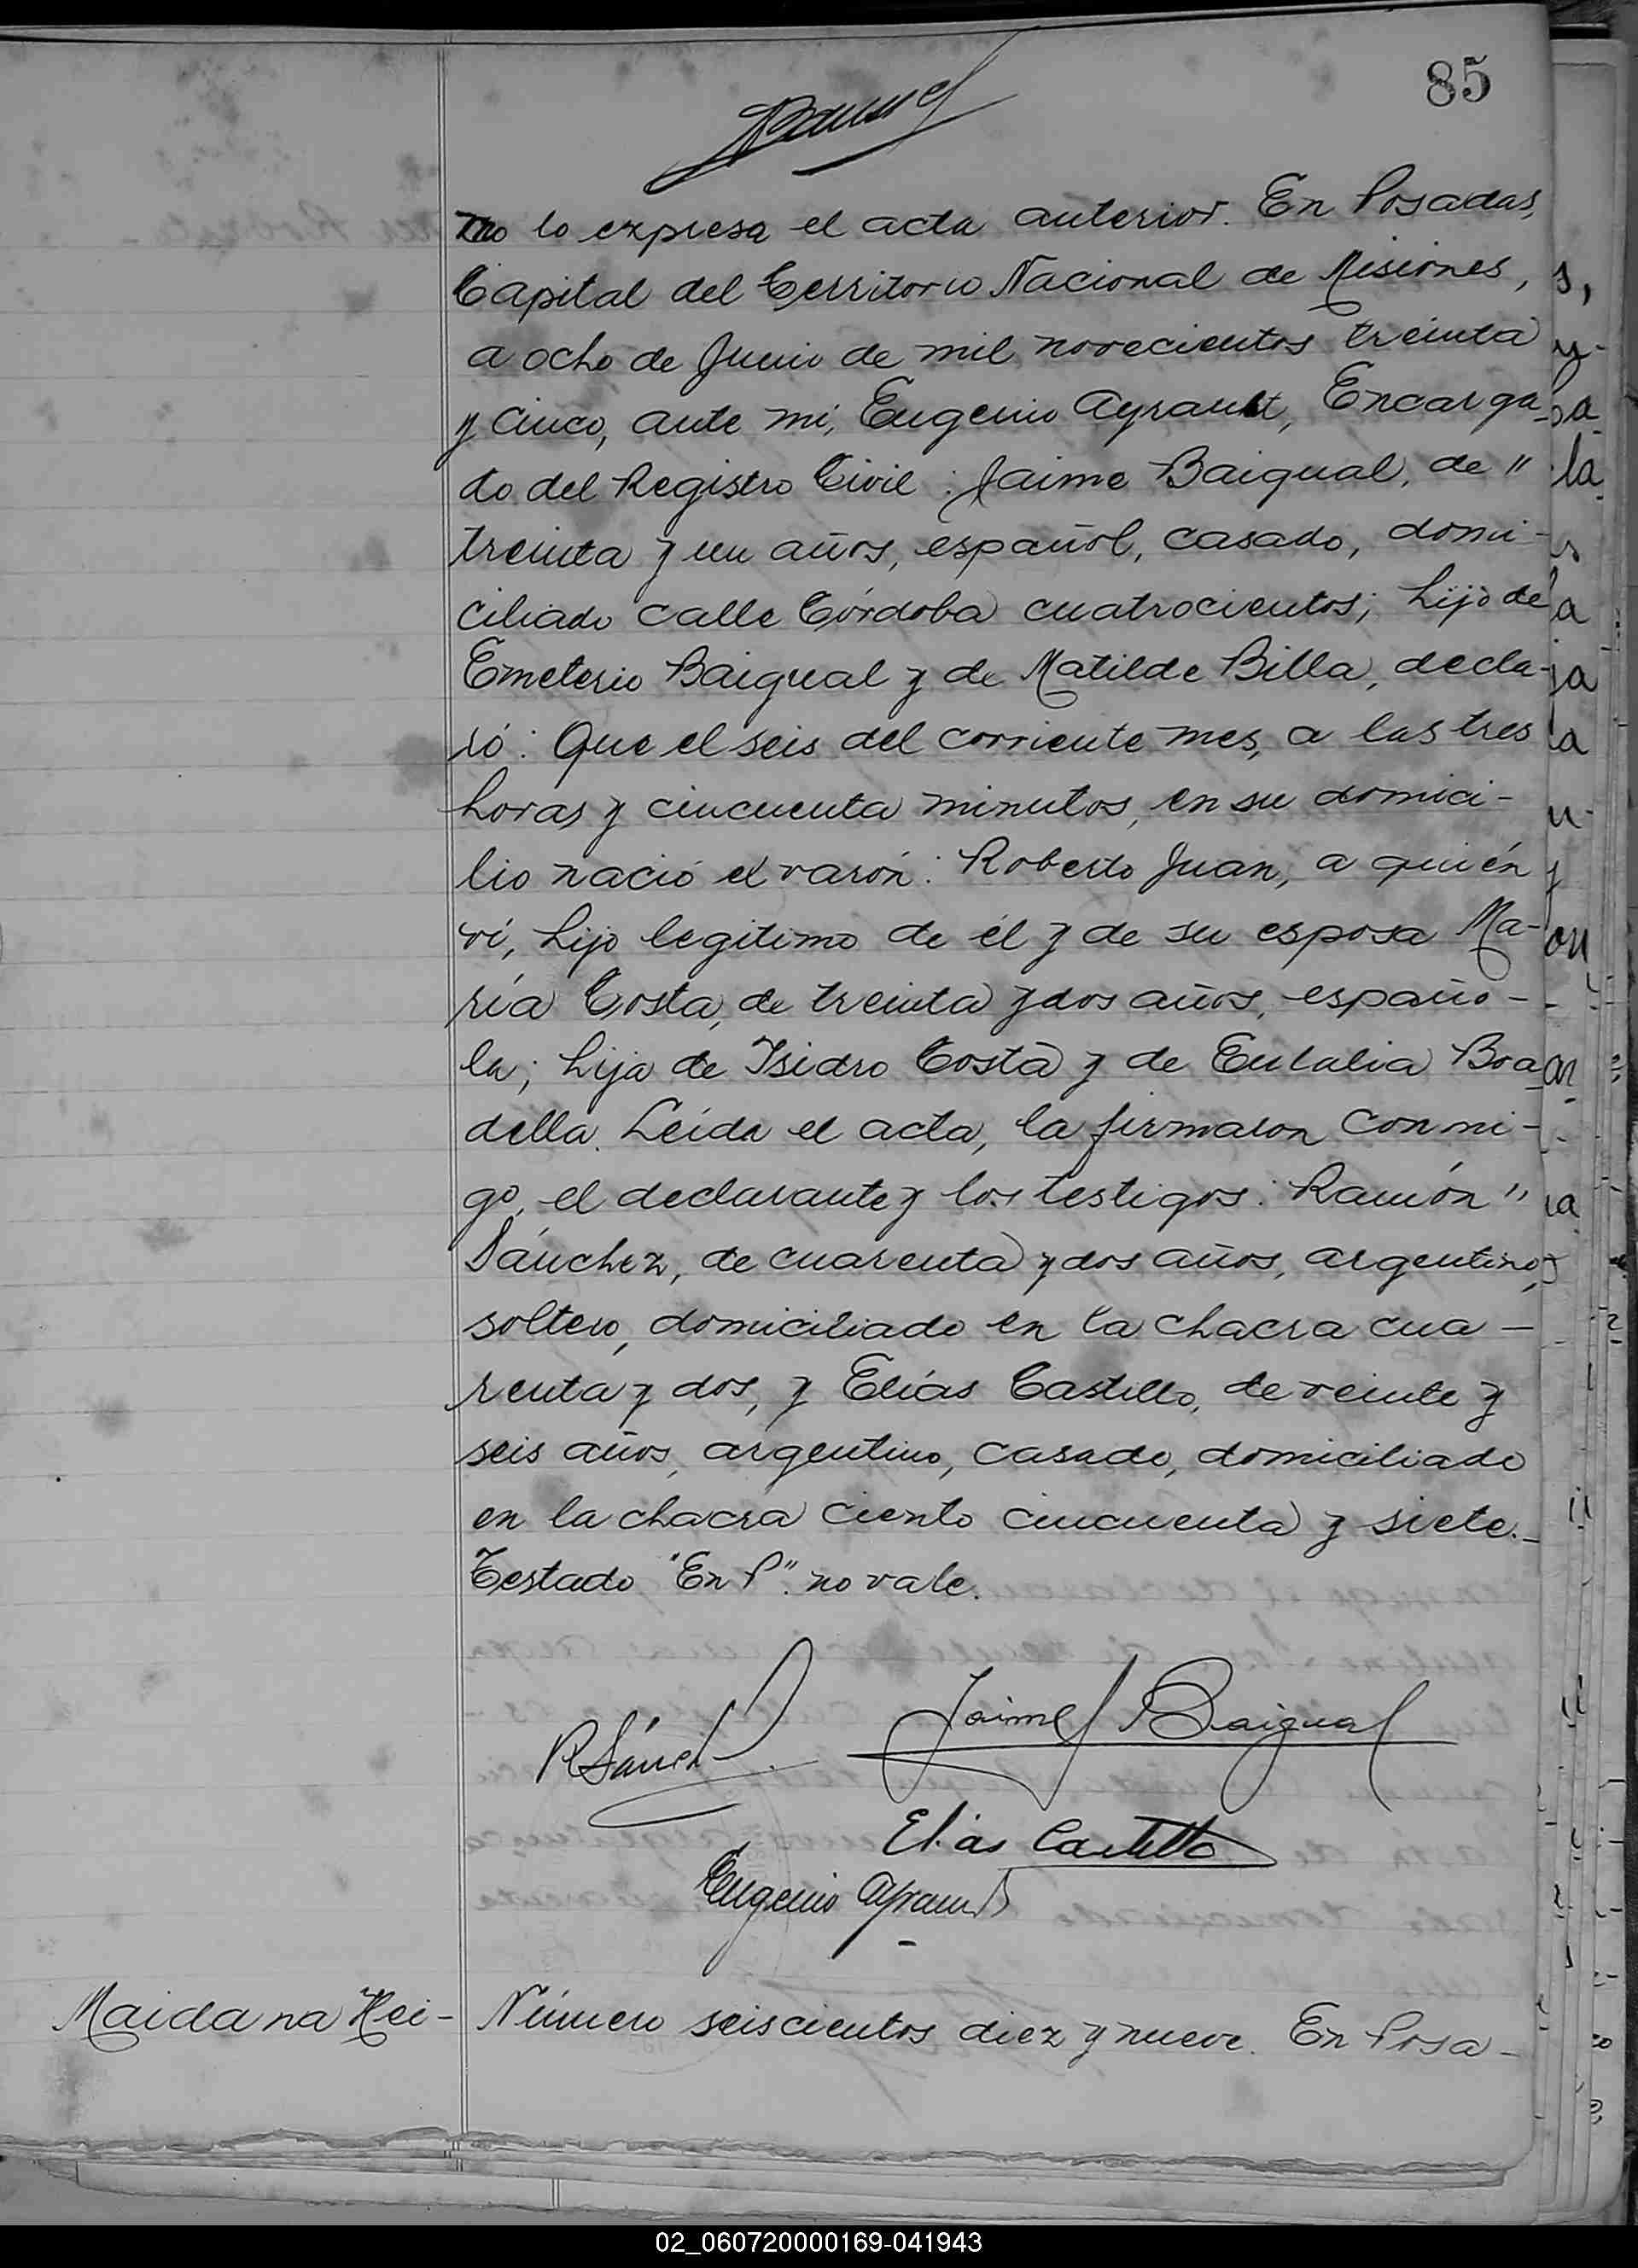 85
mo lo expresa el acta anterior. En Posadas,
Capital del Territorio Nacional de Misiones,
a ocho de Junio de mil novecientos treinta
y cinco, ante mi, Eugenio Ayrault, Encarga-
do del Registro Civil: Jaime Baigual, de "
treinta y un años, español, casado, domi-
ciliado calle Córdoba cuatrocientos; hijo de
Emeterio Baigual y de Matilde Billa, decla-
ró: Que el seis del corriente mes, a las tres
horas y cincuenta minutos, en su domici-
lio nació el varón: Roberto Juan, a quién
ví, hijo legítimo de él y de su esposa Ma-
ría Costa, de treinta y dos años, españo-
la; hija de Isidro Costa y de Eulalia Boa-
della. Leída el acta, la firmaron conmi-
go, el declarante y los testigos: Ramón "
Sánchez, de cuarenta y dos años, argentino,
soltero, domiciliado en la chacra cua-
renta y dos, y Elías Castillo, de veinte y
seis años, argentino, casado, domiciliado
en la chacra ciento cincuenta y siete.-
Testado "En P". no vale.
R Sánch
Jaime Baigual
Elias Castillo
Eugenio Ayrault
Maidana Hei-
Número seiscientos diez y nueve. En Posa-
02_060720000169-041943